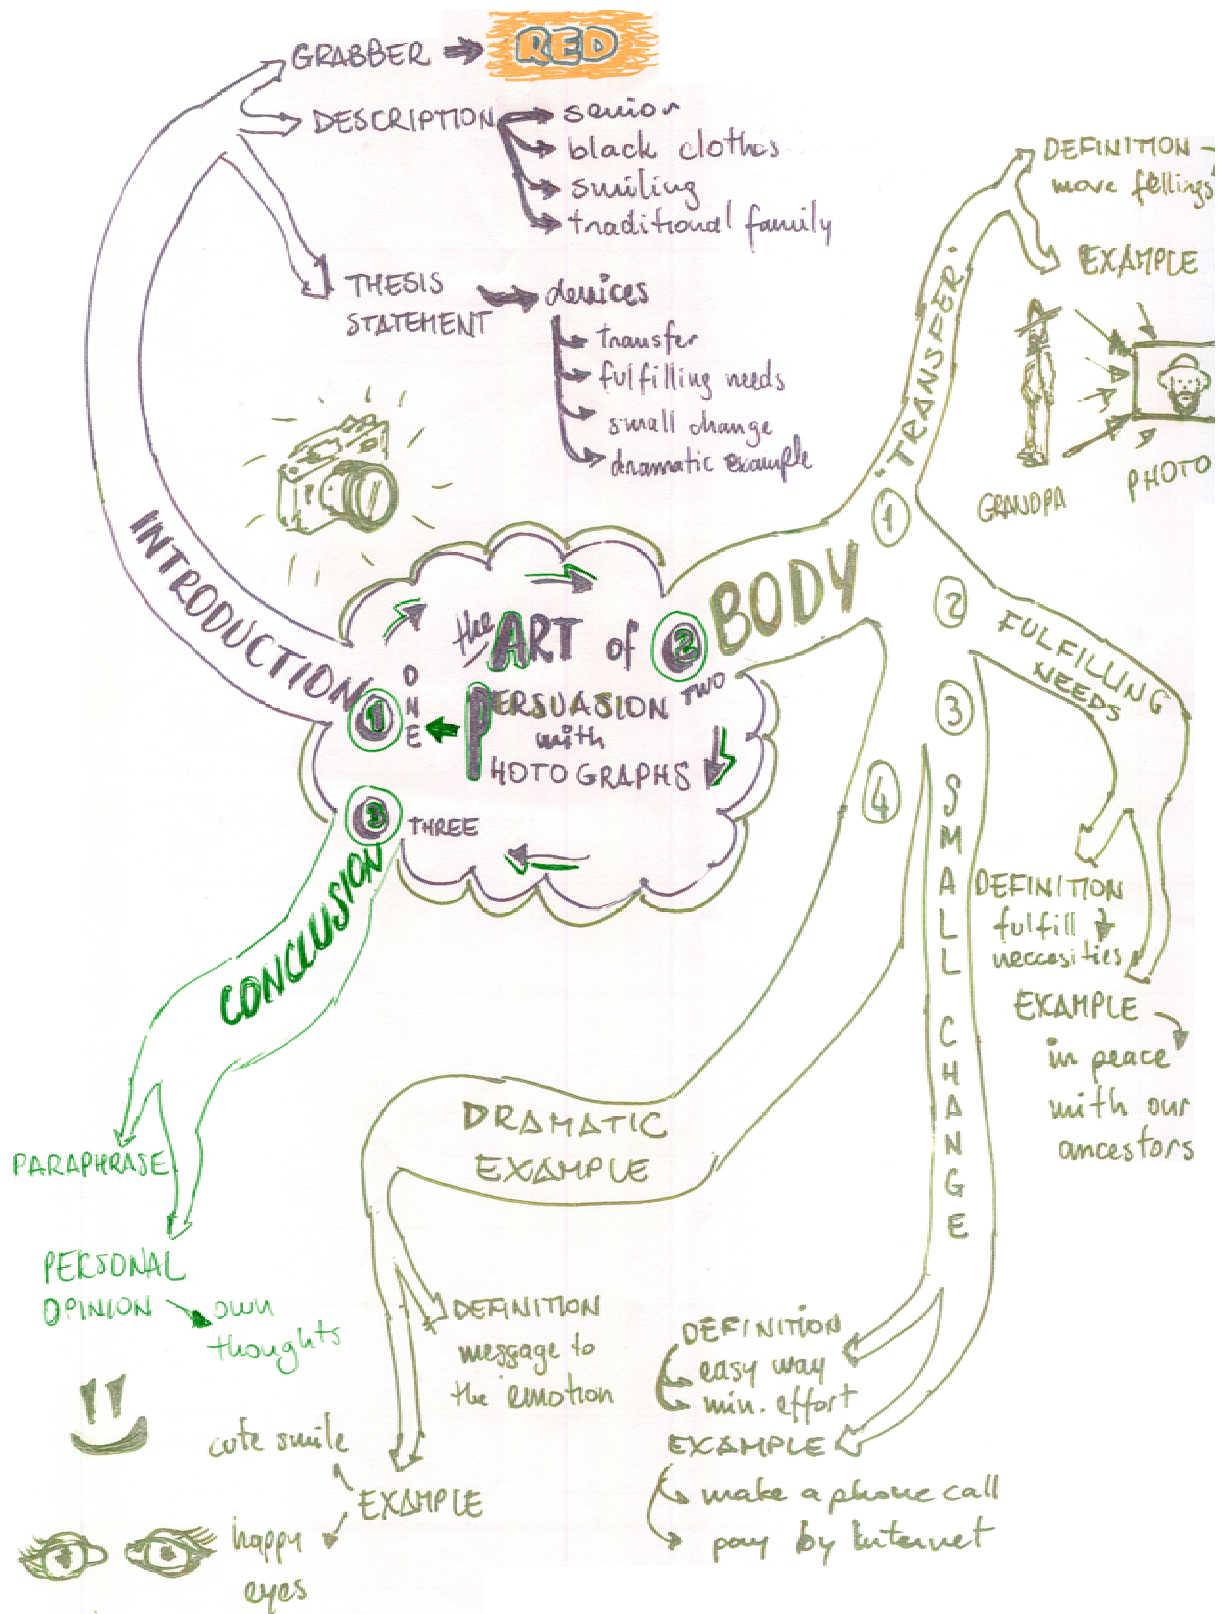 GRABBER
RED
DESCRIPTION
senior
black clothes
smiling
traditional family
THESIS
STATEMENT
devices
transfer
fulfilling needs
small change
dramatic example
INTRODUCTION
the ART of
PERSUASION
with
PHOTOGRAPHS
1
ONE
2
TWO
3
THREE
BODY
1
"TRANSFER"
DEFINITION
move fellings
EXAMPLE
GRANDPA
PHOTO
2
FULFILLING
NEEDS
DEFINITION
fulfill
neccesities
EXAMPLE
in peace
with our
ancestors
3
SMALL CHANGE
DEFINITION
easy way
min. effort
EXAMPLE
make a phone call
pay by Internet
4
DRAMATIC
EXAMPLE
DEFINITION
message to
the emotion
EXAMPLE
cute smile
happy
eyes
CONCLUSION
PARAPHRASE
PERSONAL
OPINION
own
thoughts